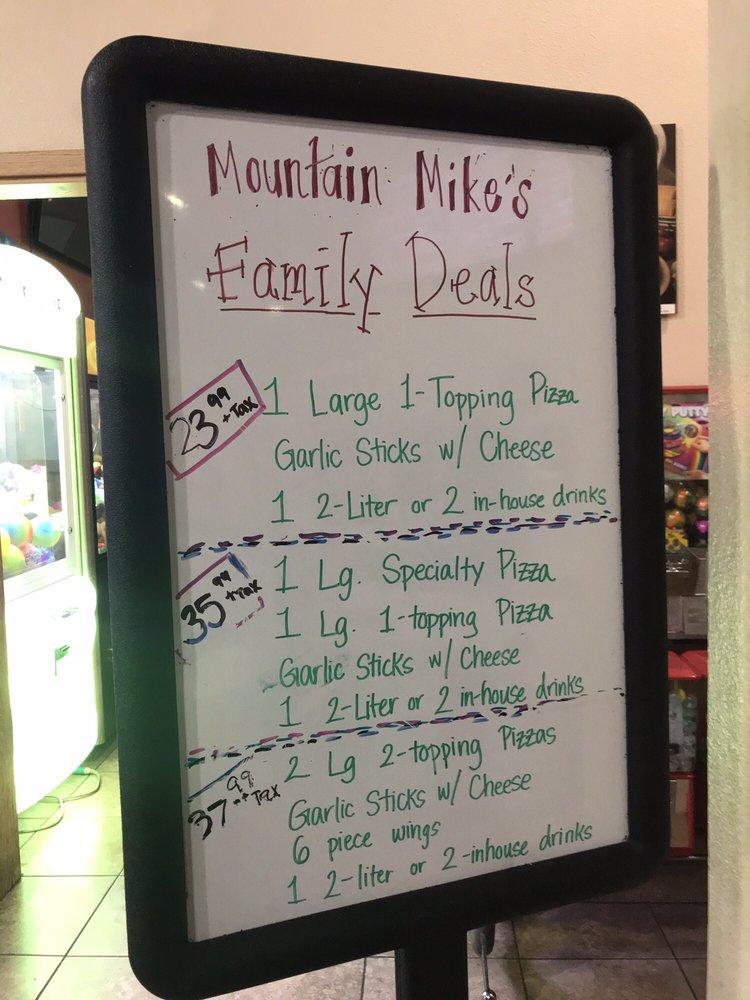 Mountain Mike's
Family Deals
23.99 + Tax
1 Large 1-Topping Pizza
Garlic Sticks w/ Cheese
1 2-Liter or 2 in-house drinks
35.99 + Tax
1 Lg. Specialty Pizza
1 Lg. 1-topping Pizza
Garlic Sticks w/ Cheese
1 2-Liter or 2 in-house drinks
37.99 + Tax
2 Lg 2-topping Pizzas
Garlic Sticks w/ Cheese
6 piece wings
1 2-liter or 2-inhouse drinks
PUTTY